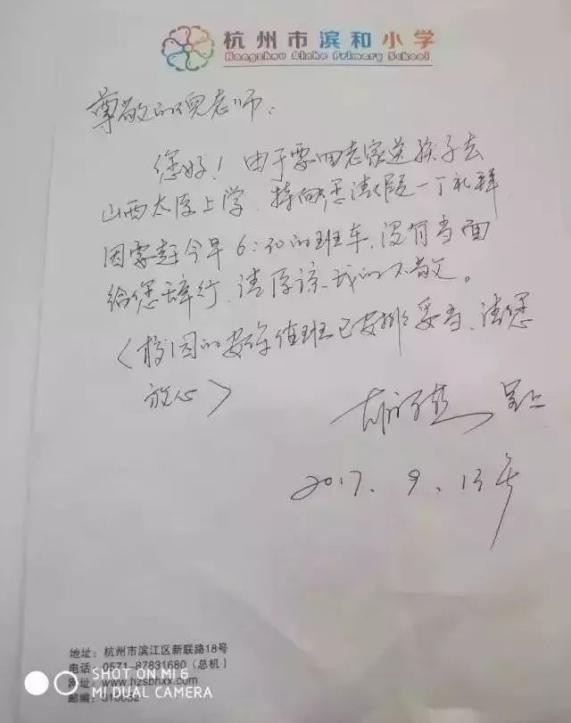 杭州市滨和小学
Hangzhou Binhe Primary School
尊敬的倪老师:
您好!由于要回老家送孩子去
山西太原上学,特向您请假一个礼拜
因需赶今早6:30的班车,没有当面
给您辞行,请原谅我的不敬。
(校园的安保值班已安排妥当,请您
放心)
呈上
2017.9.13
地址:杭州市滨江区新联路18号
电话:0571-87831680(总机)
www.hzsbhxx.com
邮编:
SHOT ON MI 6
MI DUAL CAMERA